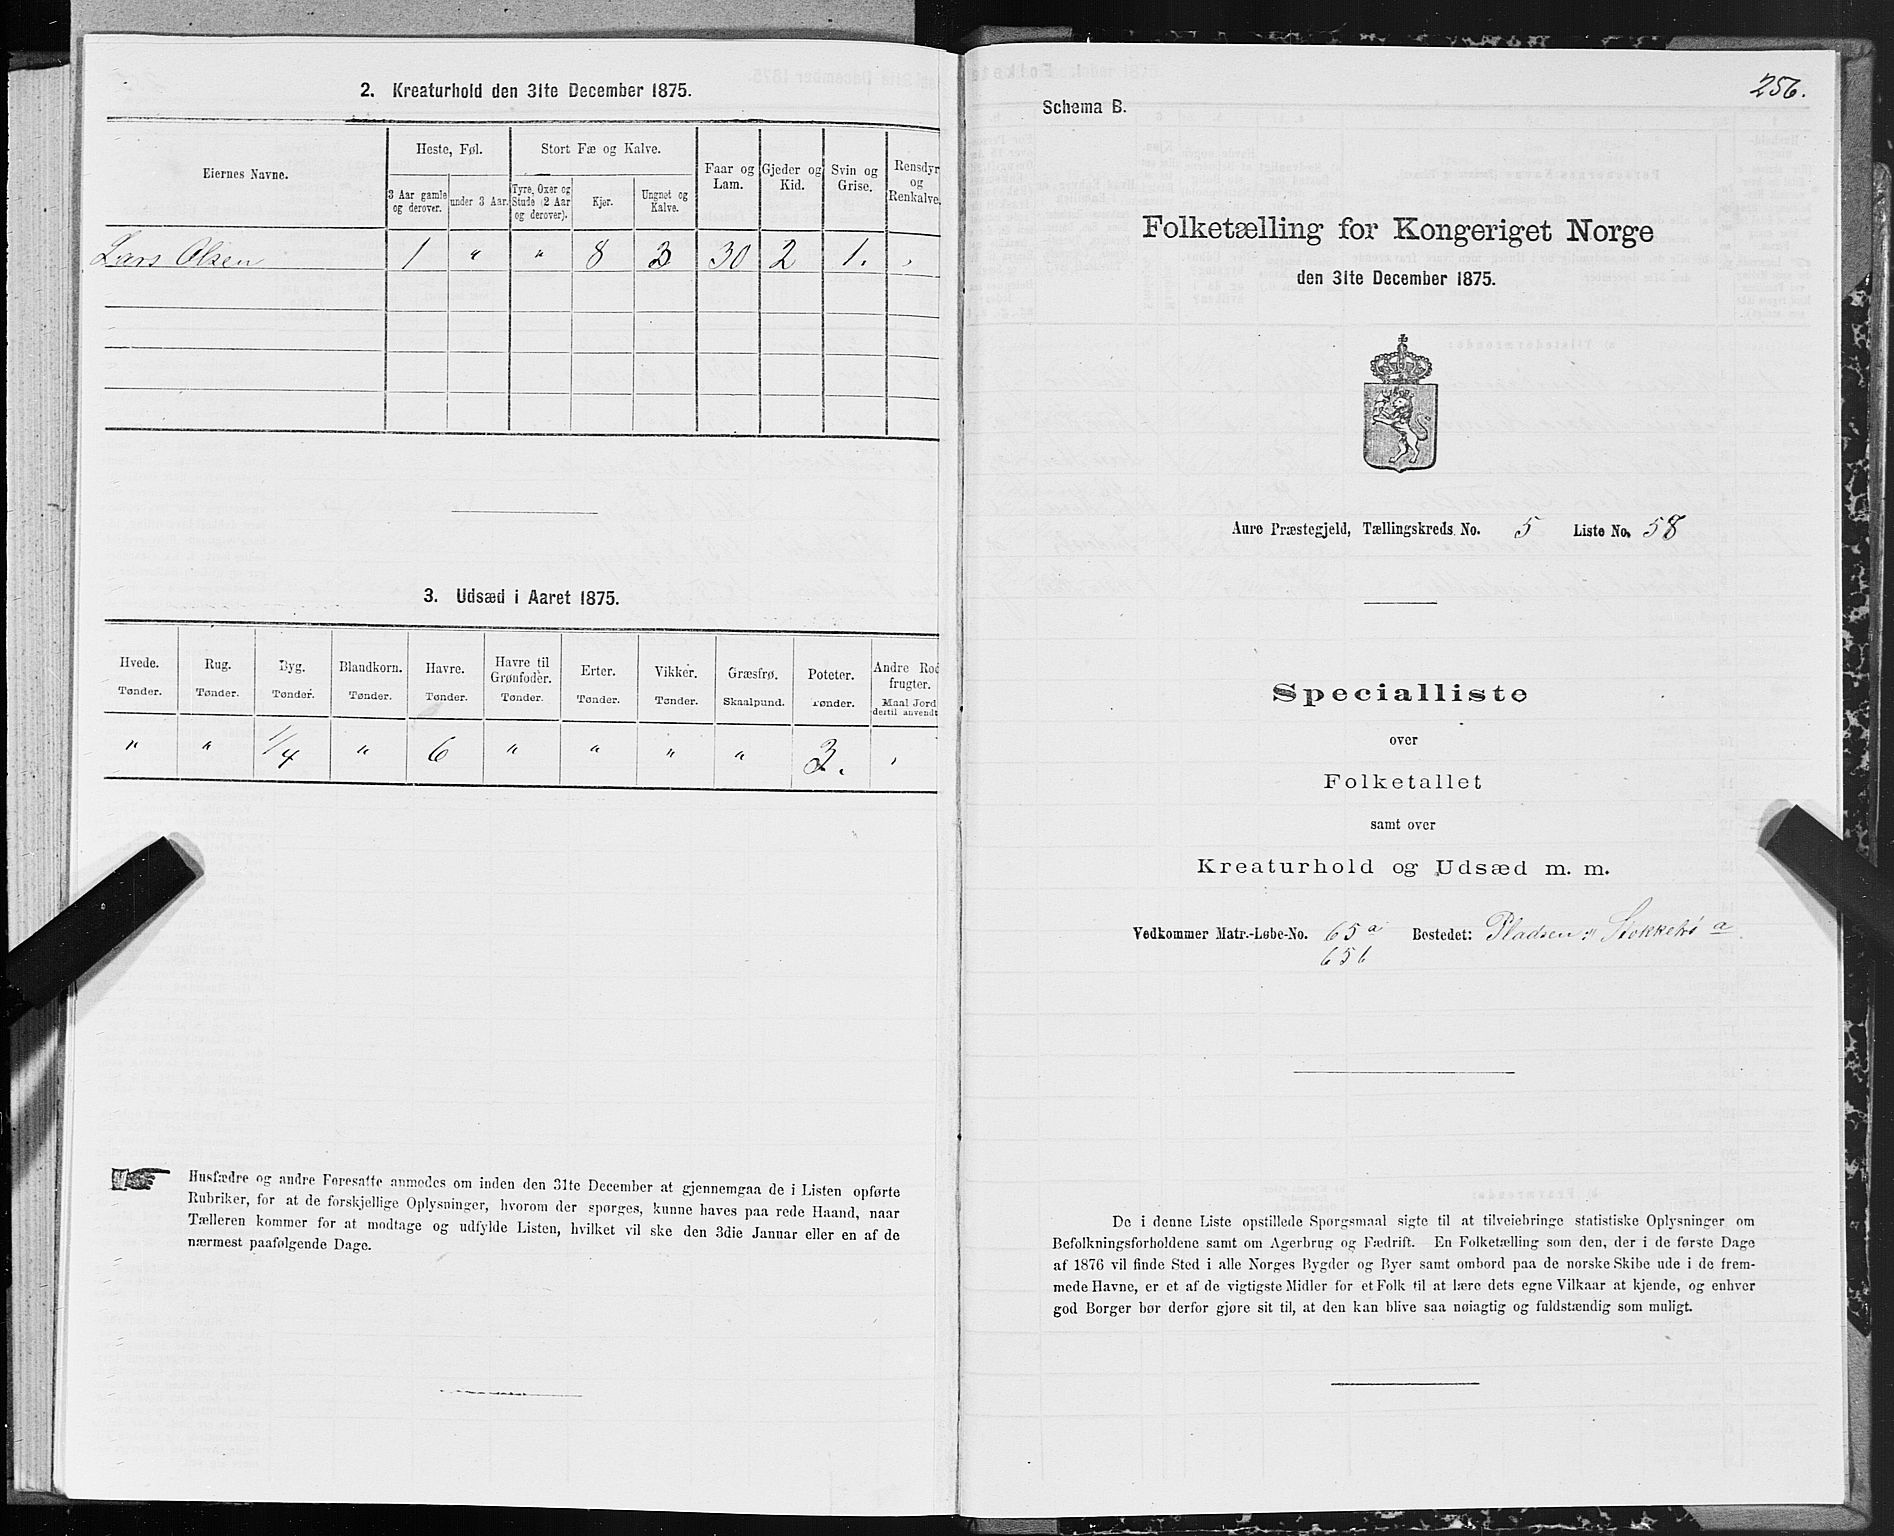 2. Kreaturhold den 31te December 1875.
Eiernes Navne.
Heste, Føl.
Stort Fæ og Kalve.
Faar og Lam.
Gjeder og Kid.
Svin og Grise.
Rensdyr og Renkalve.
3 Aar gamle og derover.
under 3 Aar.
Tyre, Oxer og Stude (2 Aar og derover).
Kjør.
Ungnøt og Kalve.
Lars Olsen 1 " " 8 3 30 2 1. ,
3. Udsæd i Aaret 1875.
Hvede. Rug. Byg. Blandkorn. Havre. Havre til Grønfoder. Erter. Vikker. Græsfrø. Poteter. Andre Rodfrugter.
Tønder. Tønder. Tønder. Tønder. Tønder. Tønder. Tønder. Tønder. Skaalpund. Tønder. Maal Jord dertil anvendt
" " 1/4 " 6 " " " " 3. ,
Husfædre og andre Foresatte anmodes om inden den 31te December at gjennemgaa de i Listen opførte
Rubriker, for at de forskjellige Oplysninger, hvorom der spørges, kunne haves paa rede Haand, naar
Tælleren kommer for at modtage og udfylde Listen, hvilket vil ske den 3die Januar eller en af de
nærmest paafølgende Dage.
256.
Schema B.
Folketælling for Kongeriget Norge
den 31te December 1875.
Aure Præstegjeld, Tællingskreds No. 5 Liste No. 58
Specialliste
over
Folketallet
samt over
Kreaturhold og Udsæd m. m.
Vedkommer Matr.-Løbe-No. 65a Bostedet: Pladsen:
65b
De i denne Liste opstillede Spørgsmaal sigte til at tilveiebringe statistiske Oplysninger om
Befolkningsforholdene samt om Agerbrug og Fædrift. En Folketælling som den, der i de første Dage
af 1876 vil finde Sted i alle Norges Bygder og Byer samt ombord paa de norske Skibe ude i de frem-
mede Havne, er et af de vigtigste Midler for et Folk til at lære dets egne Vilkaar at kjende, og enhver
god Borger bør derfor gjøre sit til, at den kan blive saa nøiagtig og fuldstændig som muligt.